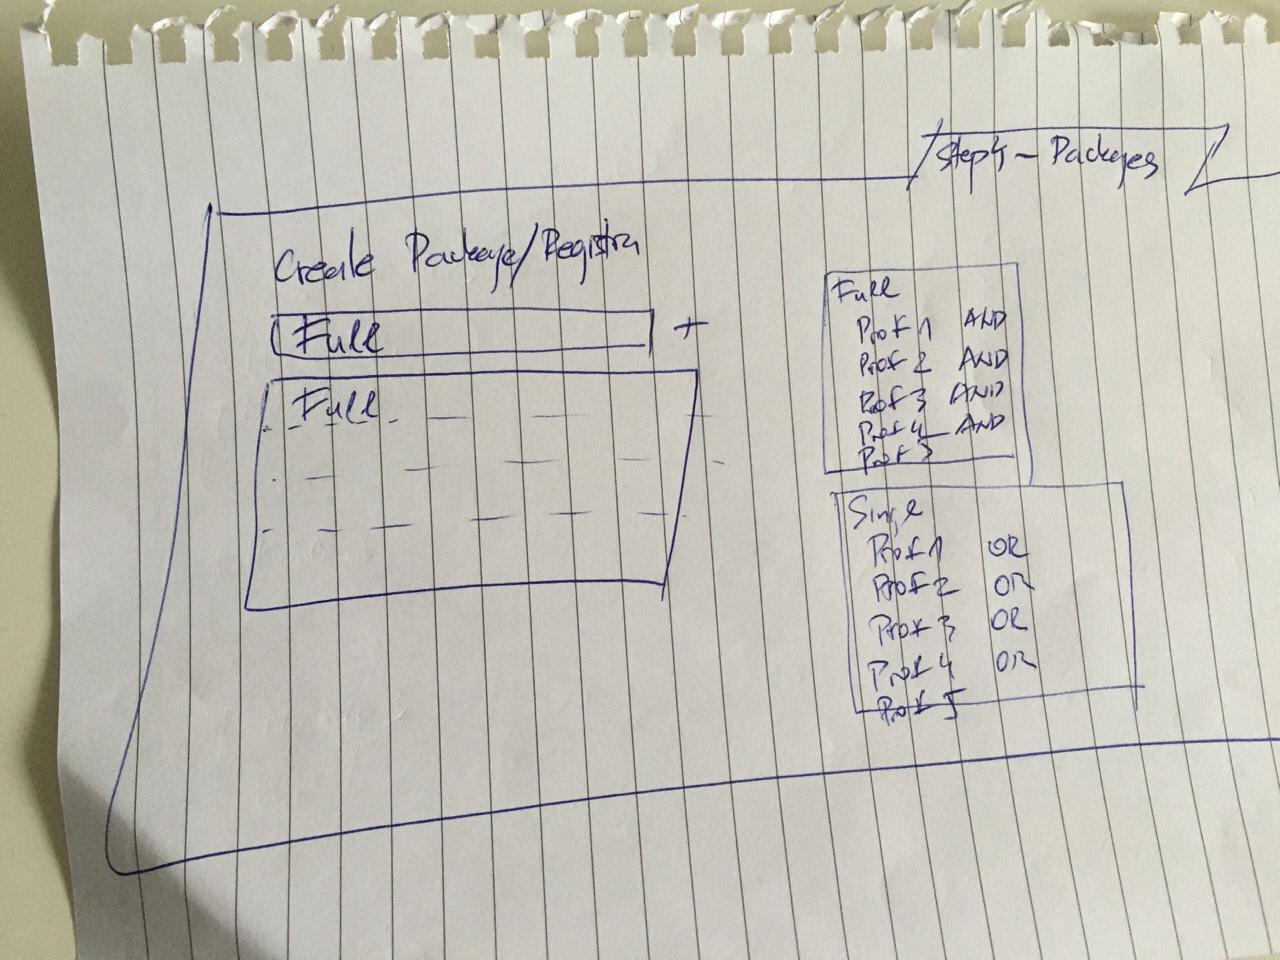 Step 4 - Packages
Create Package/Registra
Full +
Full
Full
Prof 1 AND
Prof 2 AND
Prof 3 AND
Prof 4 AND
Prof 5
Single
Prof 1 OR
Prof 2 OR
Prof 3 OR
Prof 4 OR
Prof 5